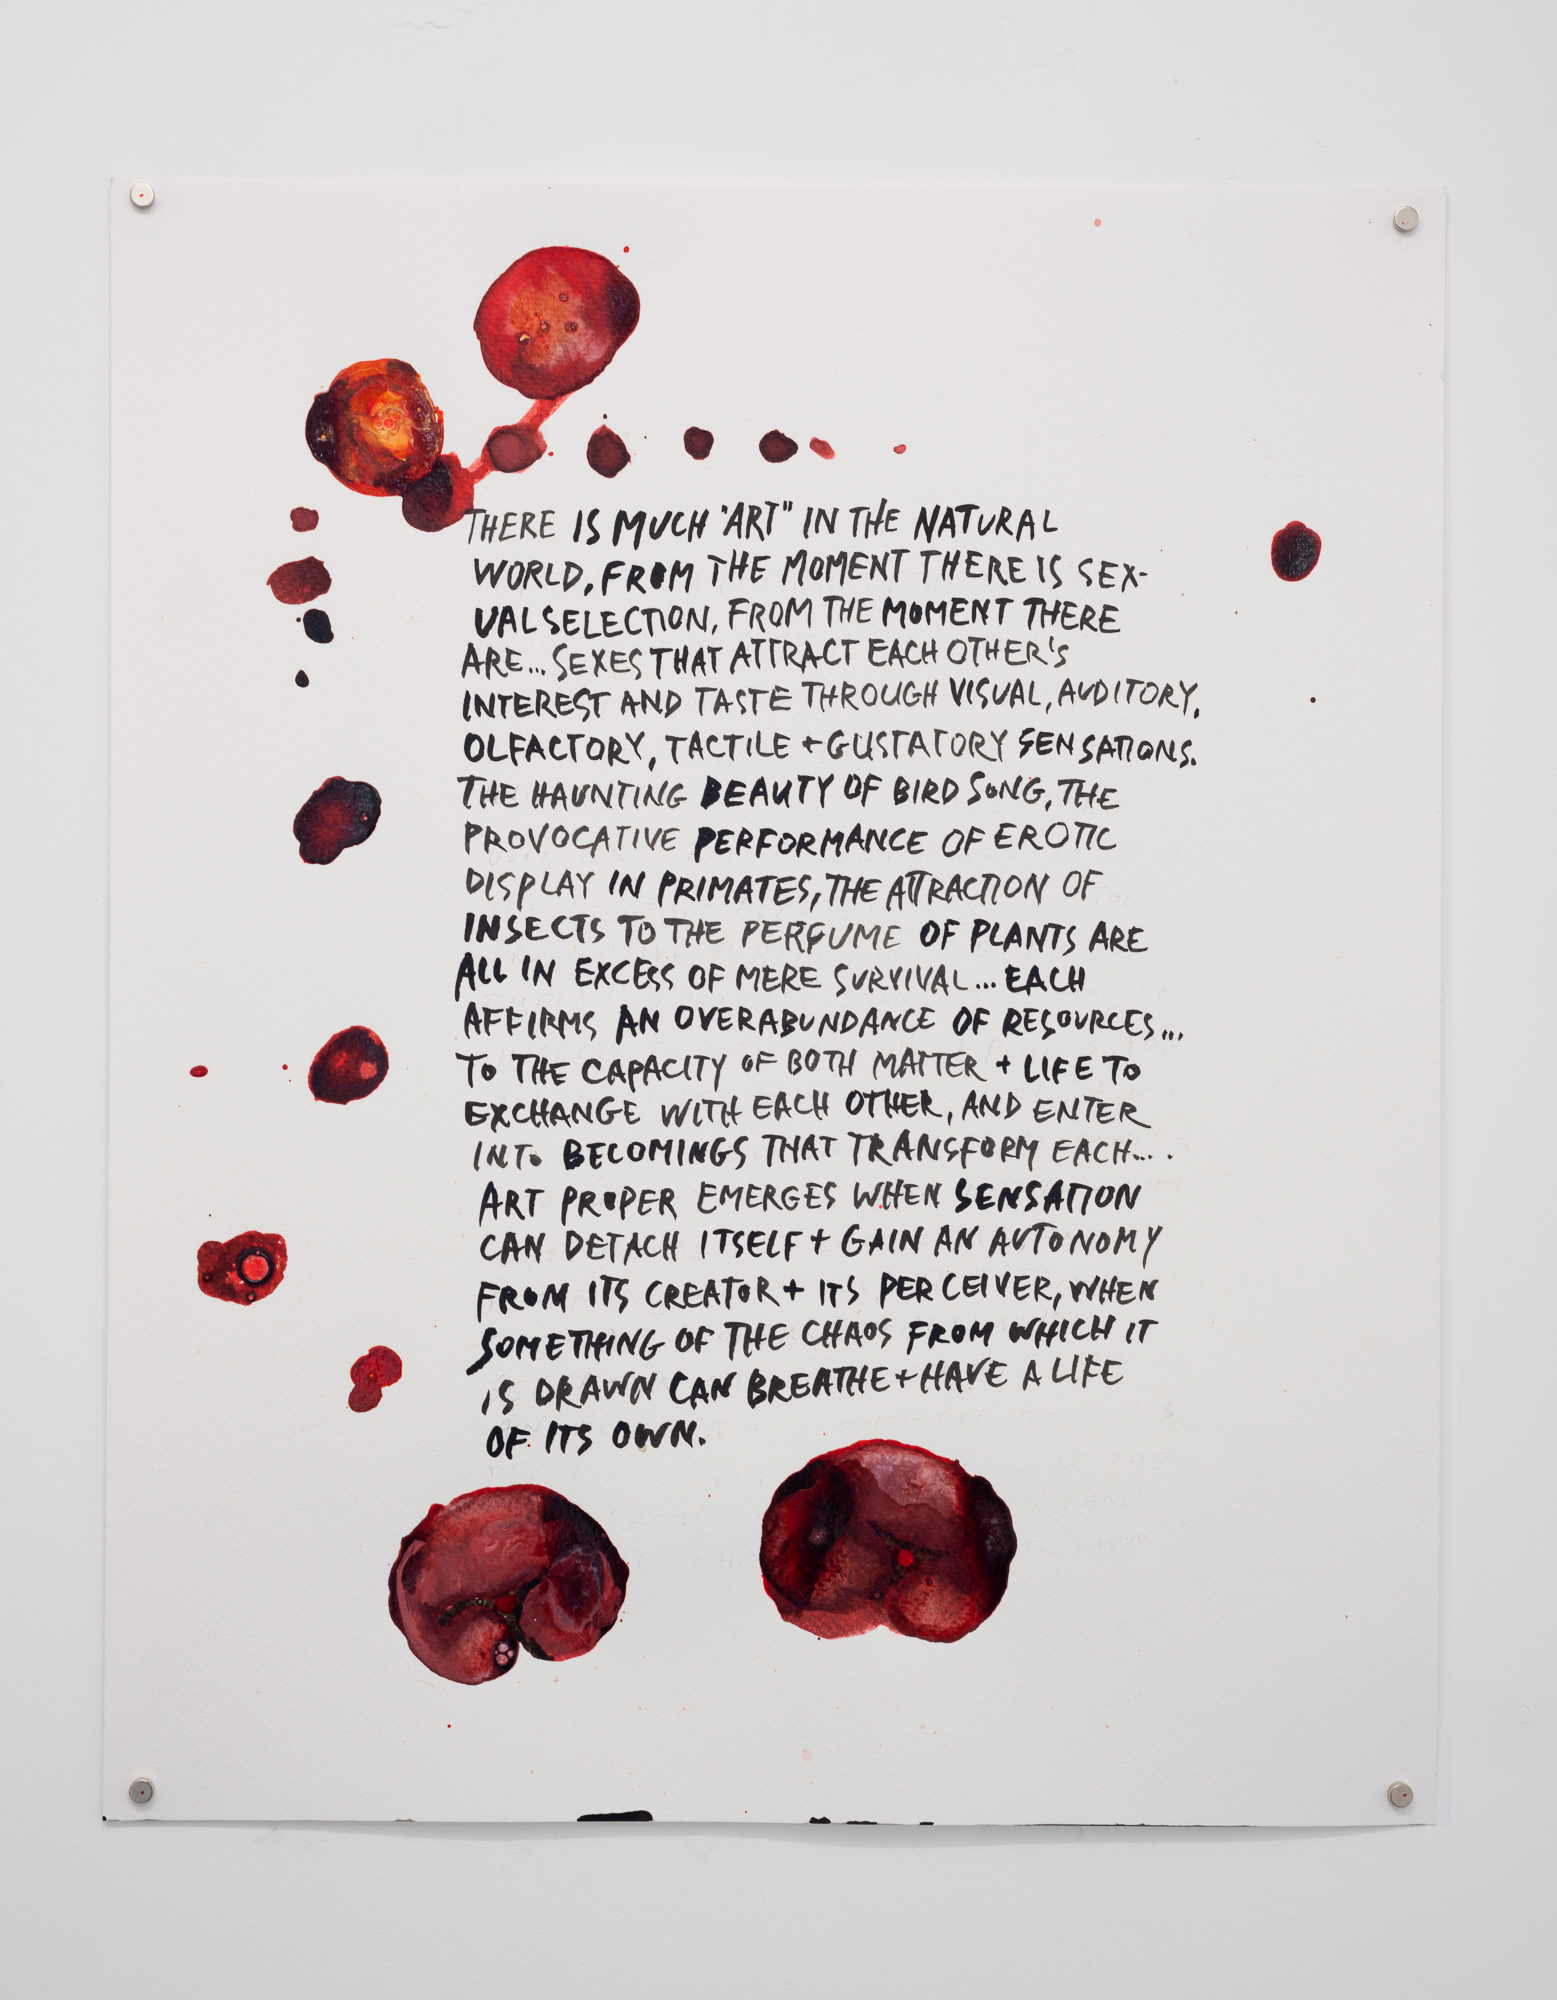 THERE IS MUCH "ART" IN THE NATURAL
WORLD, FROM THE MOMENT THERE IS SEX-
UAL SELECTION, FROM THE MOMENT THERE
ARE... SEXES THAT ATTRACT EACH OTHER'S
INTEREST AND TASTE THROUGH VISUAL, AUDITORY,
OLFACTORY, TACTILE + GUSTATORY SENSATIONS.
THE HAUNTING BEAUTY OF BIRD SONG, THE
PROVOCATIVE PERFORMANCE OF EROTIC
DISPLAY IN PRIMATES, THE ATTRACTION OF
INSECTS TO THE PERFUME OF PLANTS ARE
ALL IN EXCESS OF MERE SURVIVAL... EACH
AFFIRMS AN OVERABUNDANCE OF RESOURCES...
TO THE CAPACITY OF BOTH MATTER + LIFE TO
EXCHANGE WITH EACH OTHER, AND ENTER
INTO BECOMINGS THAT TRANSFORM EACH....
ART PROPER EMERGES WHEN SENSATION
CAN DETACH ITSELF + GAIN AN AUTONOMY
FROM ITS CREATOR + ITS PERCEIVER, WHEN
SOMETHING OF THE CHAOS FROM WHICH IT
IS DRAWN CAN BREATHE + HAVE A LIFE
OF ITS OWN.